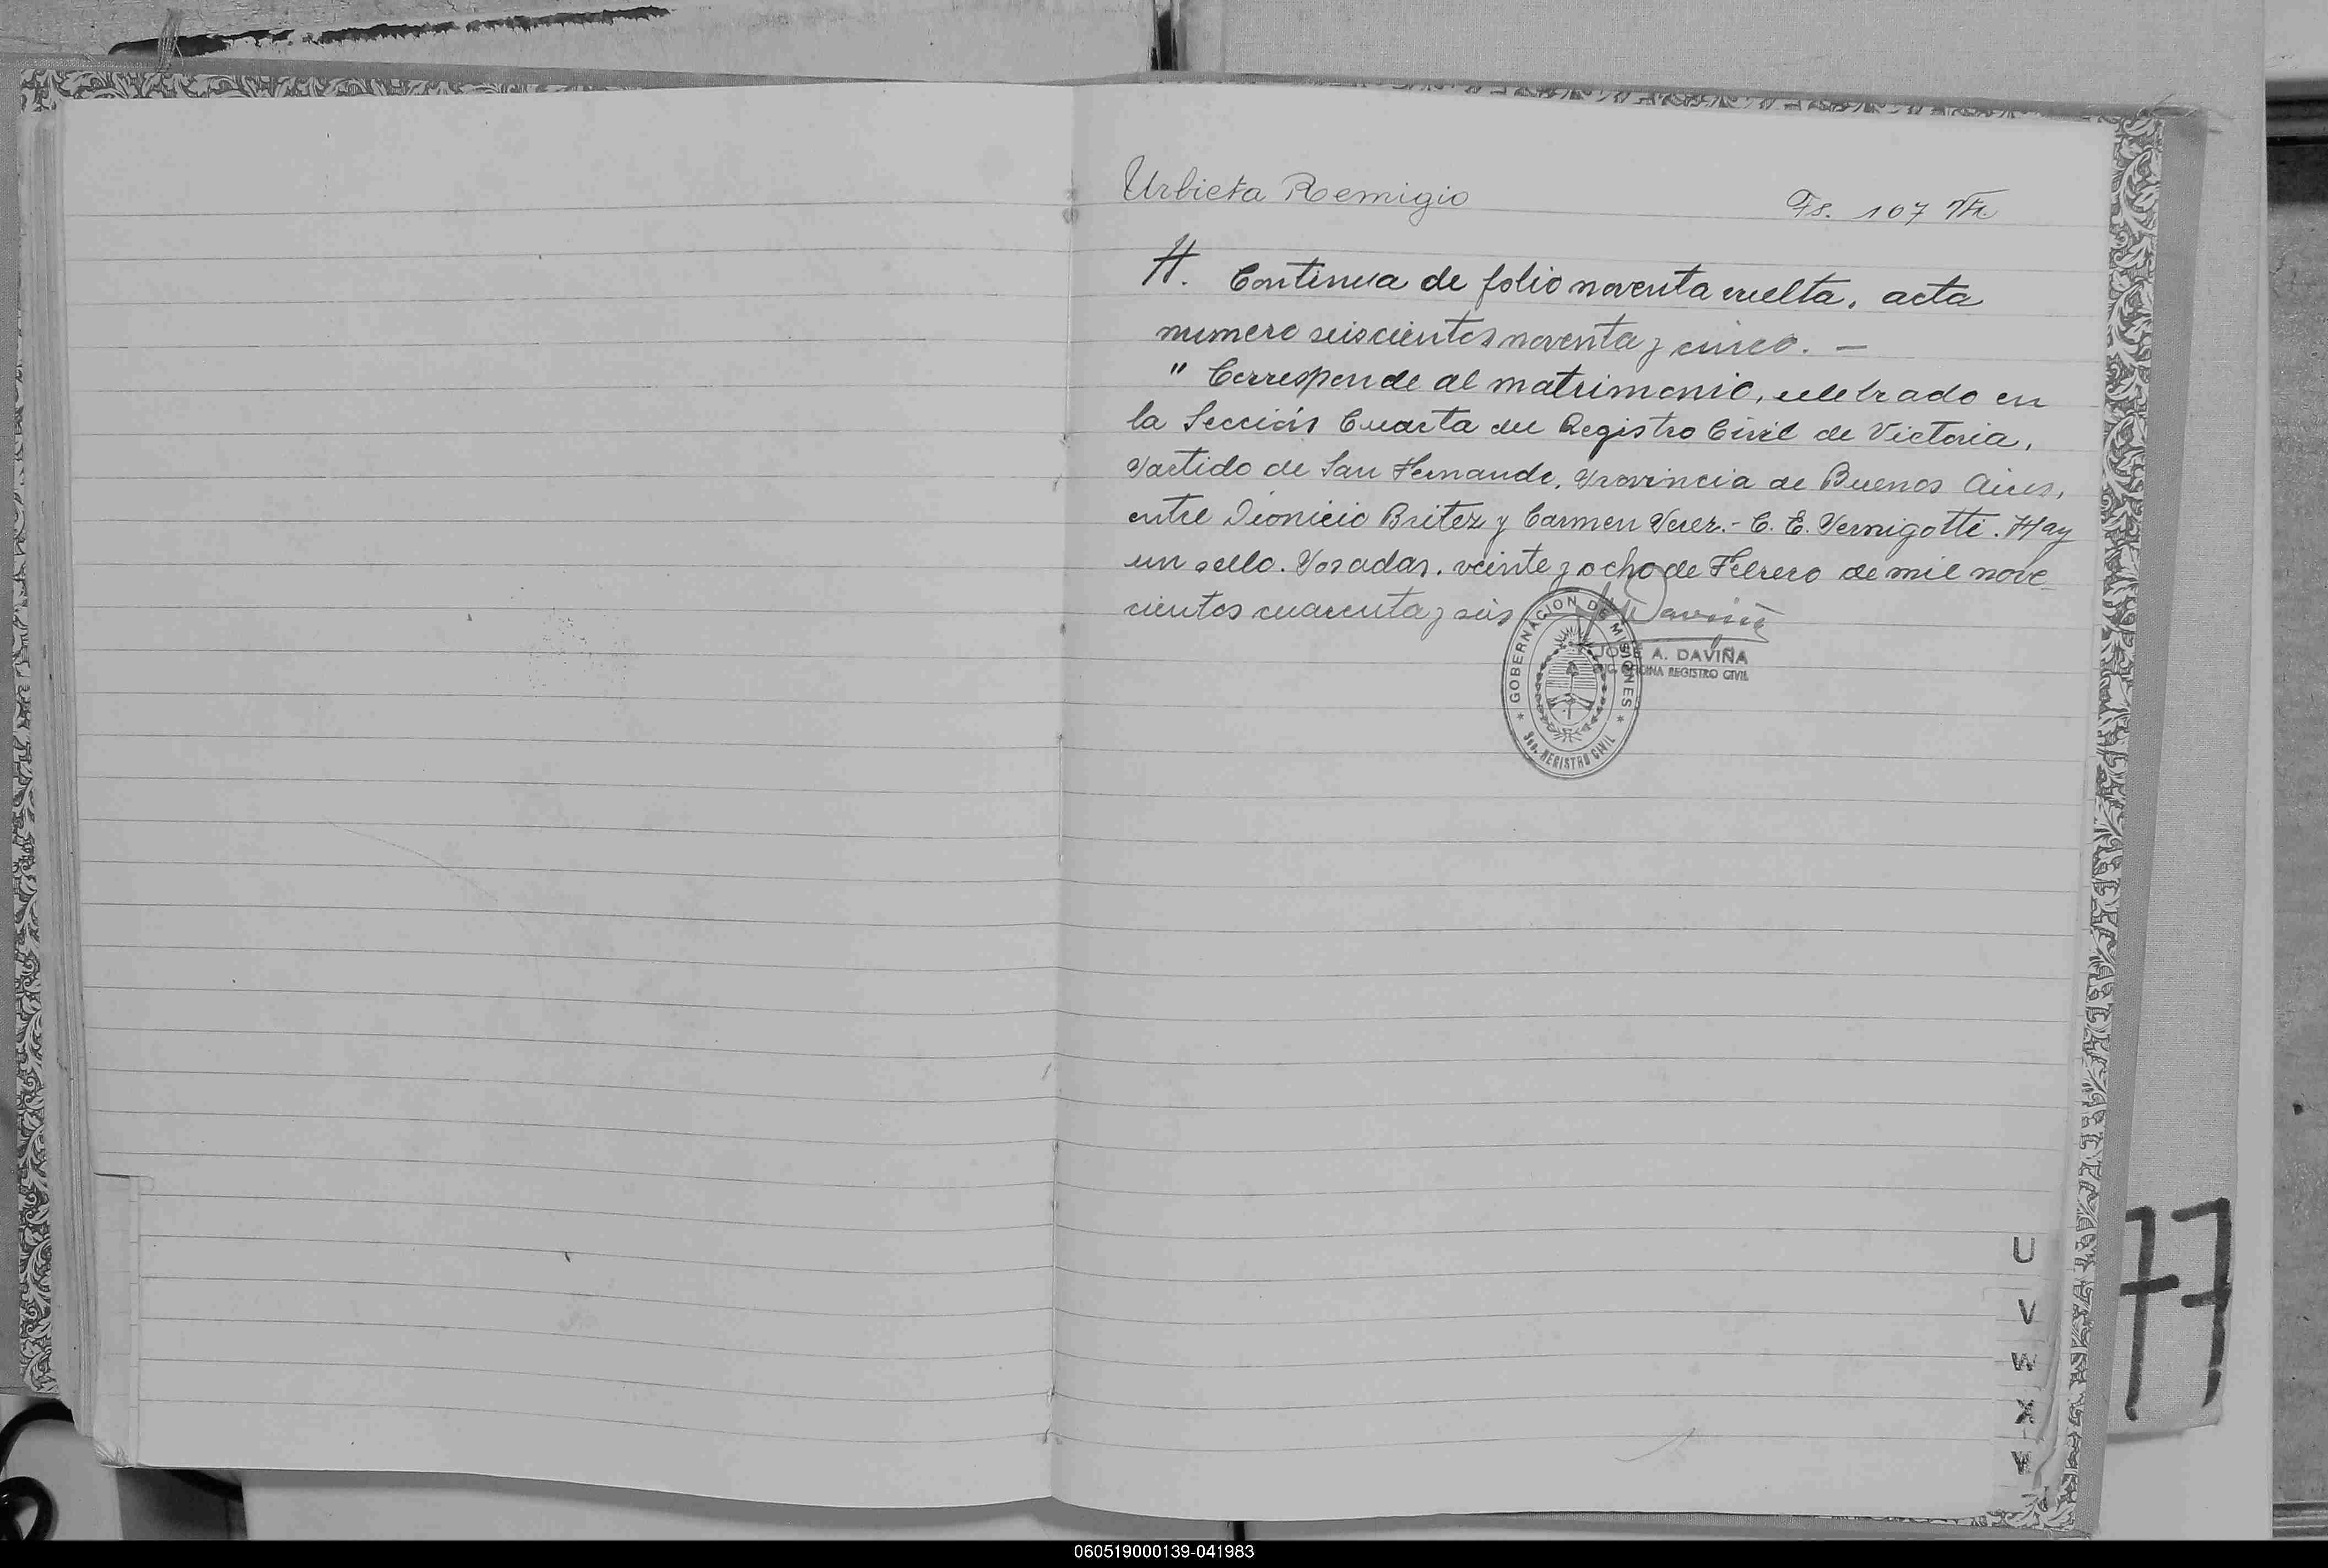 Urbieta Remigio
Fs. 107 Vta.
H. Continua de folio noventa vuelta, acta
numero seiscientos noventa y cinco. —
" Corresponde al matrimonio, celebrado en
la Sección Cuarta del Registro Civil de Victoria,
Partido de San Fernando, Provincia de Buenos Aires,
entre Dionicio Britez y Carmen Perez.- C. E. Pernigotti. Hay
un sello. Posadas, veinte y ocho de Febrero de mil nove
cientos cuarenta y seis
GOBERNACION DE MISIONES
JOSÉ A. DAVIÑA
OFICINA REGISTRO CIVIL
REGISTRO CIVIL
U
V
W
X
Y
77
060519000139-041983